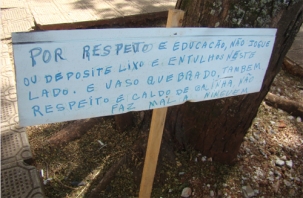 POR RESPEITO E EDUCACÃO, NÃO JOGUE
OU DEPOSITE LIXO E ENTULHOS NESTE
LADO. E VASO QUEBRADO, TAMBEM.
RESPEITO E CALDO DE GALINHA NÃO
FAZ MAL A NINGUEM